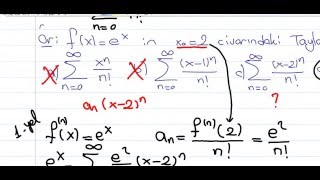 n=0
Ör: f(x)=e^x in x₀=2 civarındaki Taylo
a) ∑_{n=0}^{∞} x^n/n! b) ∑_{n=0}^{∞} (x-1)^n/n! c) ∑_{n=0}^{∞} (x-2)^n/n!
a_n(x-2)^n ?
1.yol f^{(n)}(x)=e^x a_n = f^{(n)}(2)/n! = e²/n!
e^x = ∑^{∞} e²/n! (x-2)^n